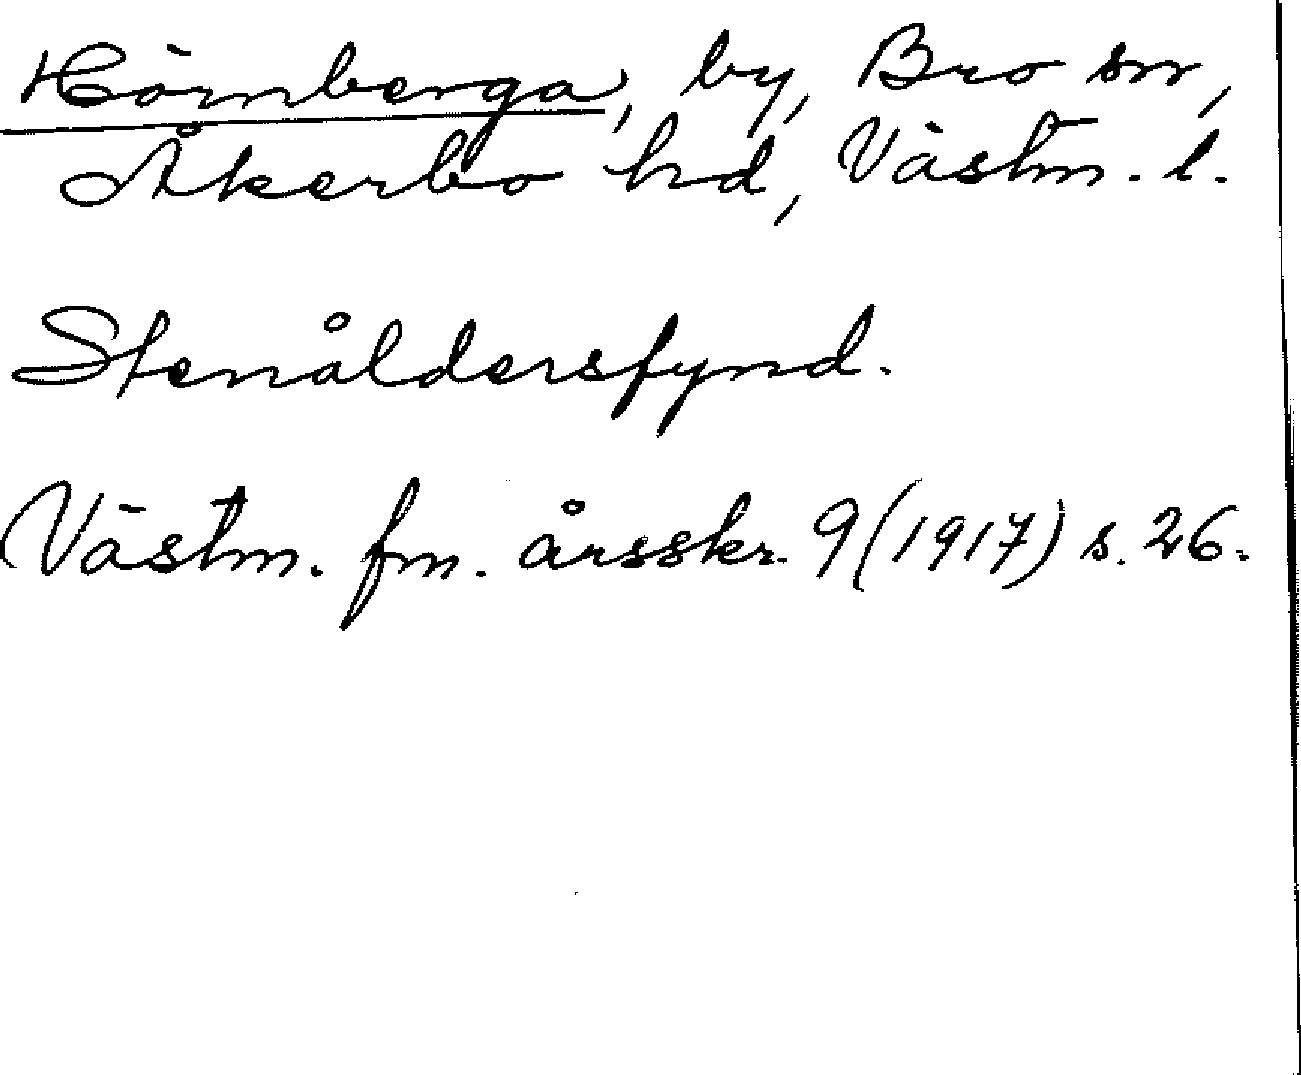 Hörnberga, by, Bro sn,
Åkerbo hd, Västm. l.
Stenåldersfynd.
Västm. fm. årsskr. 9 (1917) s. 26.